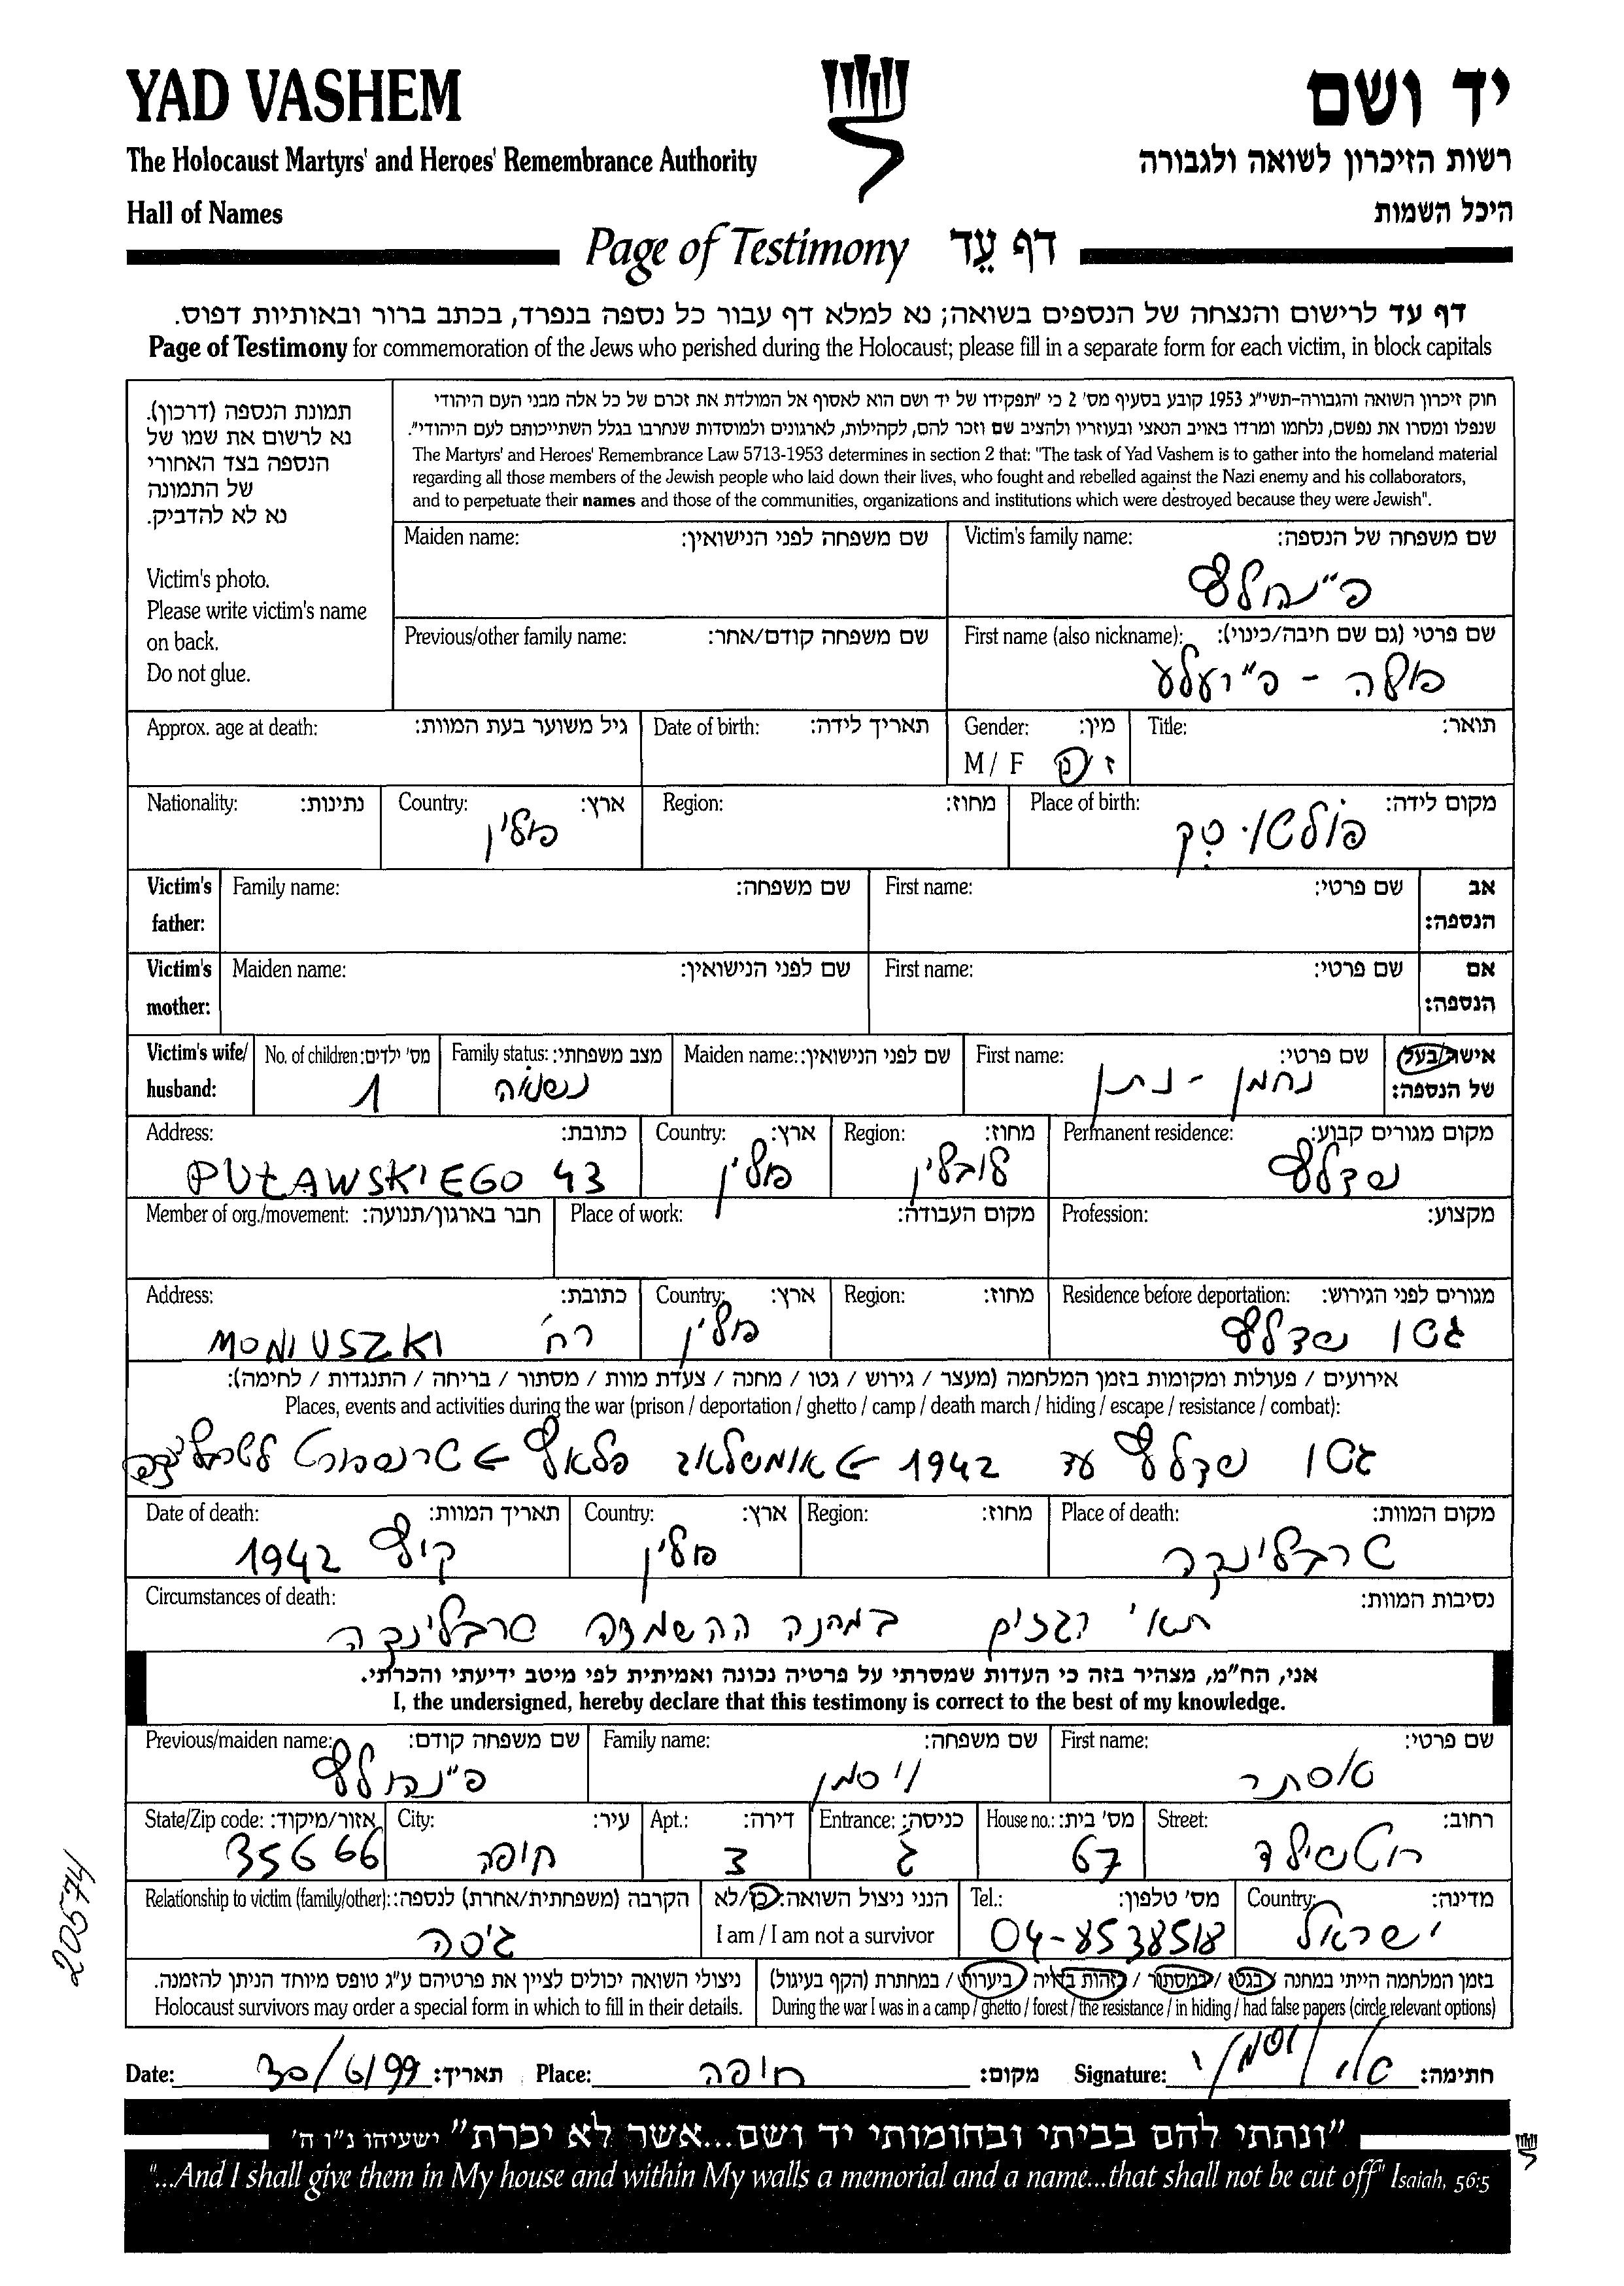 YAD VASHEM
יד ושם
The Holocaust Martyrs' and Heroes' Remembrance Authority
רשות הזיכרון לשואה ולגבורה
Hall of Names
היכל השמות
Page of Testimony דף עֵד
דף עד לרישום והנצחה של הנספים בשואה; נא למלא דף עבור כל נספה בנפרד, בכתב ברור ובאותיות דפוס.
Page of Testimony for commemoration of the Jews who perished during the Holocaust; please fill in a separate form for each victim, in block capitals
תמונת הנספה (דרכון).
נא לרשום את שמו של
הנספה בצד האחורי
של התמונה
נא לא להדביק.
Victim's photo.
Please write victim's name
on back.
Do not glue.
חוק זיכרון השואה והגבורה-תשי"ג 1953 קובע בסעיף מס' 2 כי "תפקידו של יד ושם הוא לאסוף אל המולדת את זכרם של כל אלה מבני העם היהודי
שנפלו ומסרו את נפשם, נלחמו ומרדו באויב הנאצי ובעוזריו ולהציב שם וזכר להם, לקהילות, לארגונים ולמוסדות שנחרבו בגלל השתייכותם לעם היהודי".
The Martyrs' and Heroes' Remembrance Law 5713-1953 determines in section 2 that: "The task of Yad Vashem is to gather into the homeland material
regarding all those members of the Jewish people who laid down their lives, who fought and rebelled against the Nazi enemy and his collaborators,
and to perpetuate their names and those of the communities, organizations and institutions which were destroyed because they were Jewish".
Victim's family name: שם משפחה של הנספה:
פיינהולץ
Maiden name: שם משפחה לפני הנישואין:
First name (also nickname): שם פרטי (גם שם חיבה/כינוי):
Previous/other family name: שם משפחה קודם/אחר:
Title: תואר:
Gender: מין:
M / F ז / נ
Date of birth: תאריך לידה:
Approx. age at death: גיל משוער בעת המוות:
Place of birth: מקום לידה:
Region: מחוז:
Country: ארץ:
פולין
Nationality: נתינות:
Victim's father: Family name: שם משפחה: First name: שם פרטי: אב הנספה:
Victim's mother: Maiden name: שם לפני הנישואין: First name: שם פרטי: אם הנספה:
אישה/בעל של הנספה: Victim's wife/ husband:
First name: שם פרטי:
נחמן - נתן
Maiden name: שם לפני הנישואין:
Family status: מצב משפחתי:
נשואה
No. of children: מס' ילדים:
1
Permanent residence: מקום מגורים קבוע:
שדלץ
Region: מחוז:
לובלין
Country: ארץ:
פולין
Address: כתובת:
PUŁAWSKIEGO 43
Profession: מקצוע:
Place of work: מקום העבודה:
Member of org./movement: חבר בארגון/תנועה:
Residence before deportation: מגורים לפני הגירוש:
גטו שדלץ
Region: מחוז:
Country: ארץ:
פולין
Address: כתובת:
רח' MONIUSZKI
אירועים / פעולות ומקומות בזמן המלחמה (מעצר / גירוש / גטו / מחנה / צעדת מוות / מסתור / בריחה / התנגדות / לחימה):
Places, events and activities during the war (prison / deportation / ghetto / camp / death march / hiding / escape / resistance / combat):
גטו שדלץ עד 1942 → אומשלאג פלאץ → טרנספורט לטרבלינקה
Place of death: מקום המוות:
טרבלינקה
Region: מחוז:
Country: ארץ:
פולין
Date of death: תאריך המוות:
קיץ 1942
Circumstances of death: נסיבות המוות:
תאי הגזים במחנה ההשמדה טרבלינקה
אני, הח"מ, מצהיר בזה כי העדות שמסרתי על פרטיה נכונה ואמיתית לפי מיטב ידיעתי והכרתי.
I, the undersigned, hereby declare that this testimony is correct to the best of my knowledge.
First name: שם פרטי:
אסתר
Family name: שם משפחה:
ויסמן
Previous/maiden name: שם משפחה קודם:
פיינהולץ
Street: רחוב:
רוטשילד
House no.: מס' בית:
67
Entrance: כניסה:
ג
Apt.: דירה:
3
City: עיר:
חיפה
State/Zip code: אזור/מיקוד:
35666
Country: מדינה:
ישראל
Tel.: מס' טלפון:
04-8538518
הנני ניצול השואה: כן/לא
I am / I am not a survivor
Relationship to victim (family/other): הקרבה (משפחתית/אחרת) לנספה:
גיסה
בזמן המלחמה הייתי במחנה / בגטו / במסתור / זהות בדויה / ביערות / במחתרת (הקף בעיגול)
During the war I was in a camp / ghetto / forest / the resistance / in hiding / had false papers (circle relevant options)
ניצולי השואה יכולים לציין את פרטיהם ע"ג טופס מיוחד הניתן להזמנה.
Holocaust survivors may order a special form in which to fill in their details.
Date: 30/6/99 תאריך: Place: חיפה מקום: Signature: חתימה:
"ונתתי להם בביתי ובחומותי יד ושם...אשר לא יכרת" ישעיהו נ"ו ה'
"...And I shall give them in My house and within My walls a memorial and a name...that shall not be cut off" Isaiah, 56:5
20574